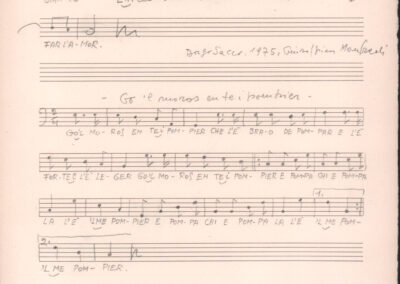 FAR L'A-MOR.
1975,
- Go 'l moros en te i pompier -
GO'L MO-ROS EN TEI POM-PIER CHE L'È BRA-O DE POM-PAR E L'È
FOR-TE E L'È LE-GER GO'L MO-ROS EN TEI POM-PIER E POMPA CHI E POM-PA
1.
LA L'È 'ILME POM-PIER E POM-PA CHI E POM-PA LA L'È 'IL ME POM-
2.
'IL ME POM-PIER.